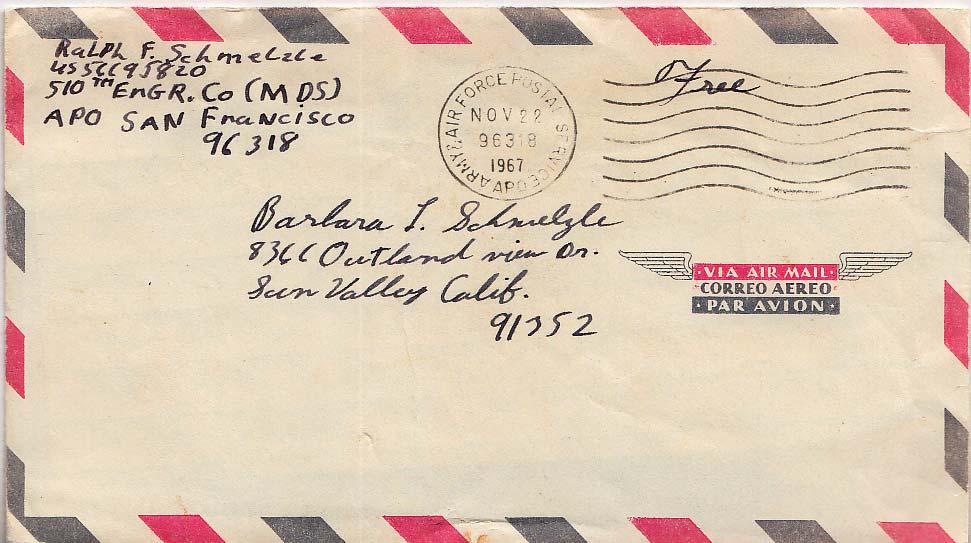 Ralph F. Schmelzle
US56695820
510TH EnGR. Co (MDS)
APO SAN Francisco
96318
ARMY & AIR FORCE POSTAL SERVICE
APO
NOV 22
96318
1967
Free
Barbara I. Schmelzle
8366 Outland view Dr.
Sun Valley Calif.
91352
· VIA AIR MAIL ·
CORREO AEREO
· PAR AVION ·